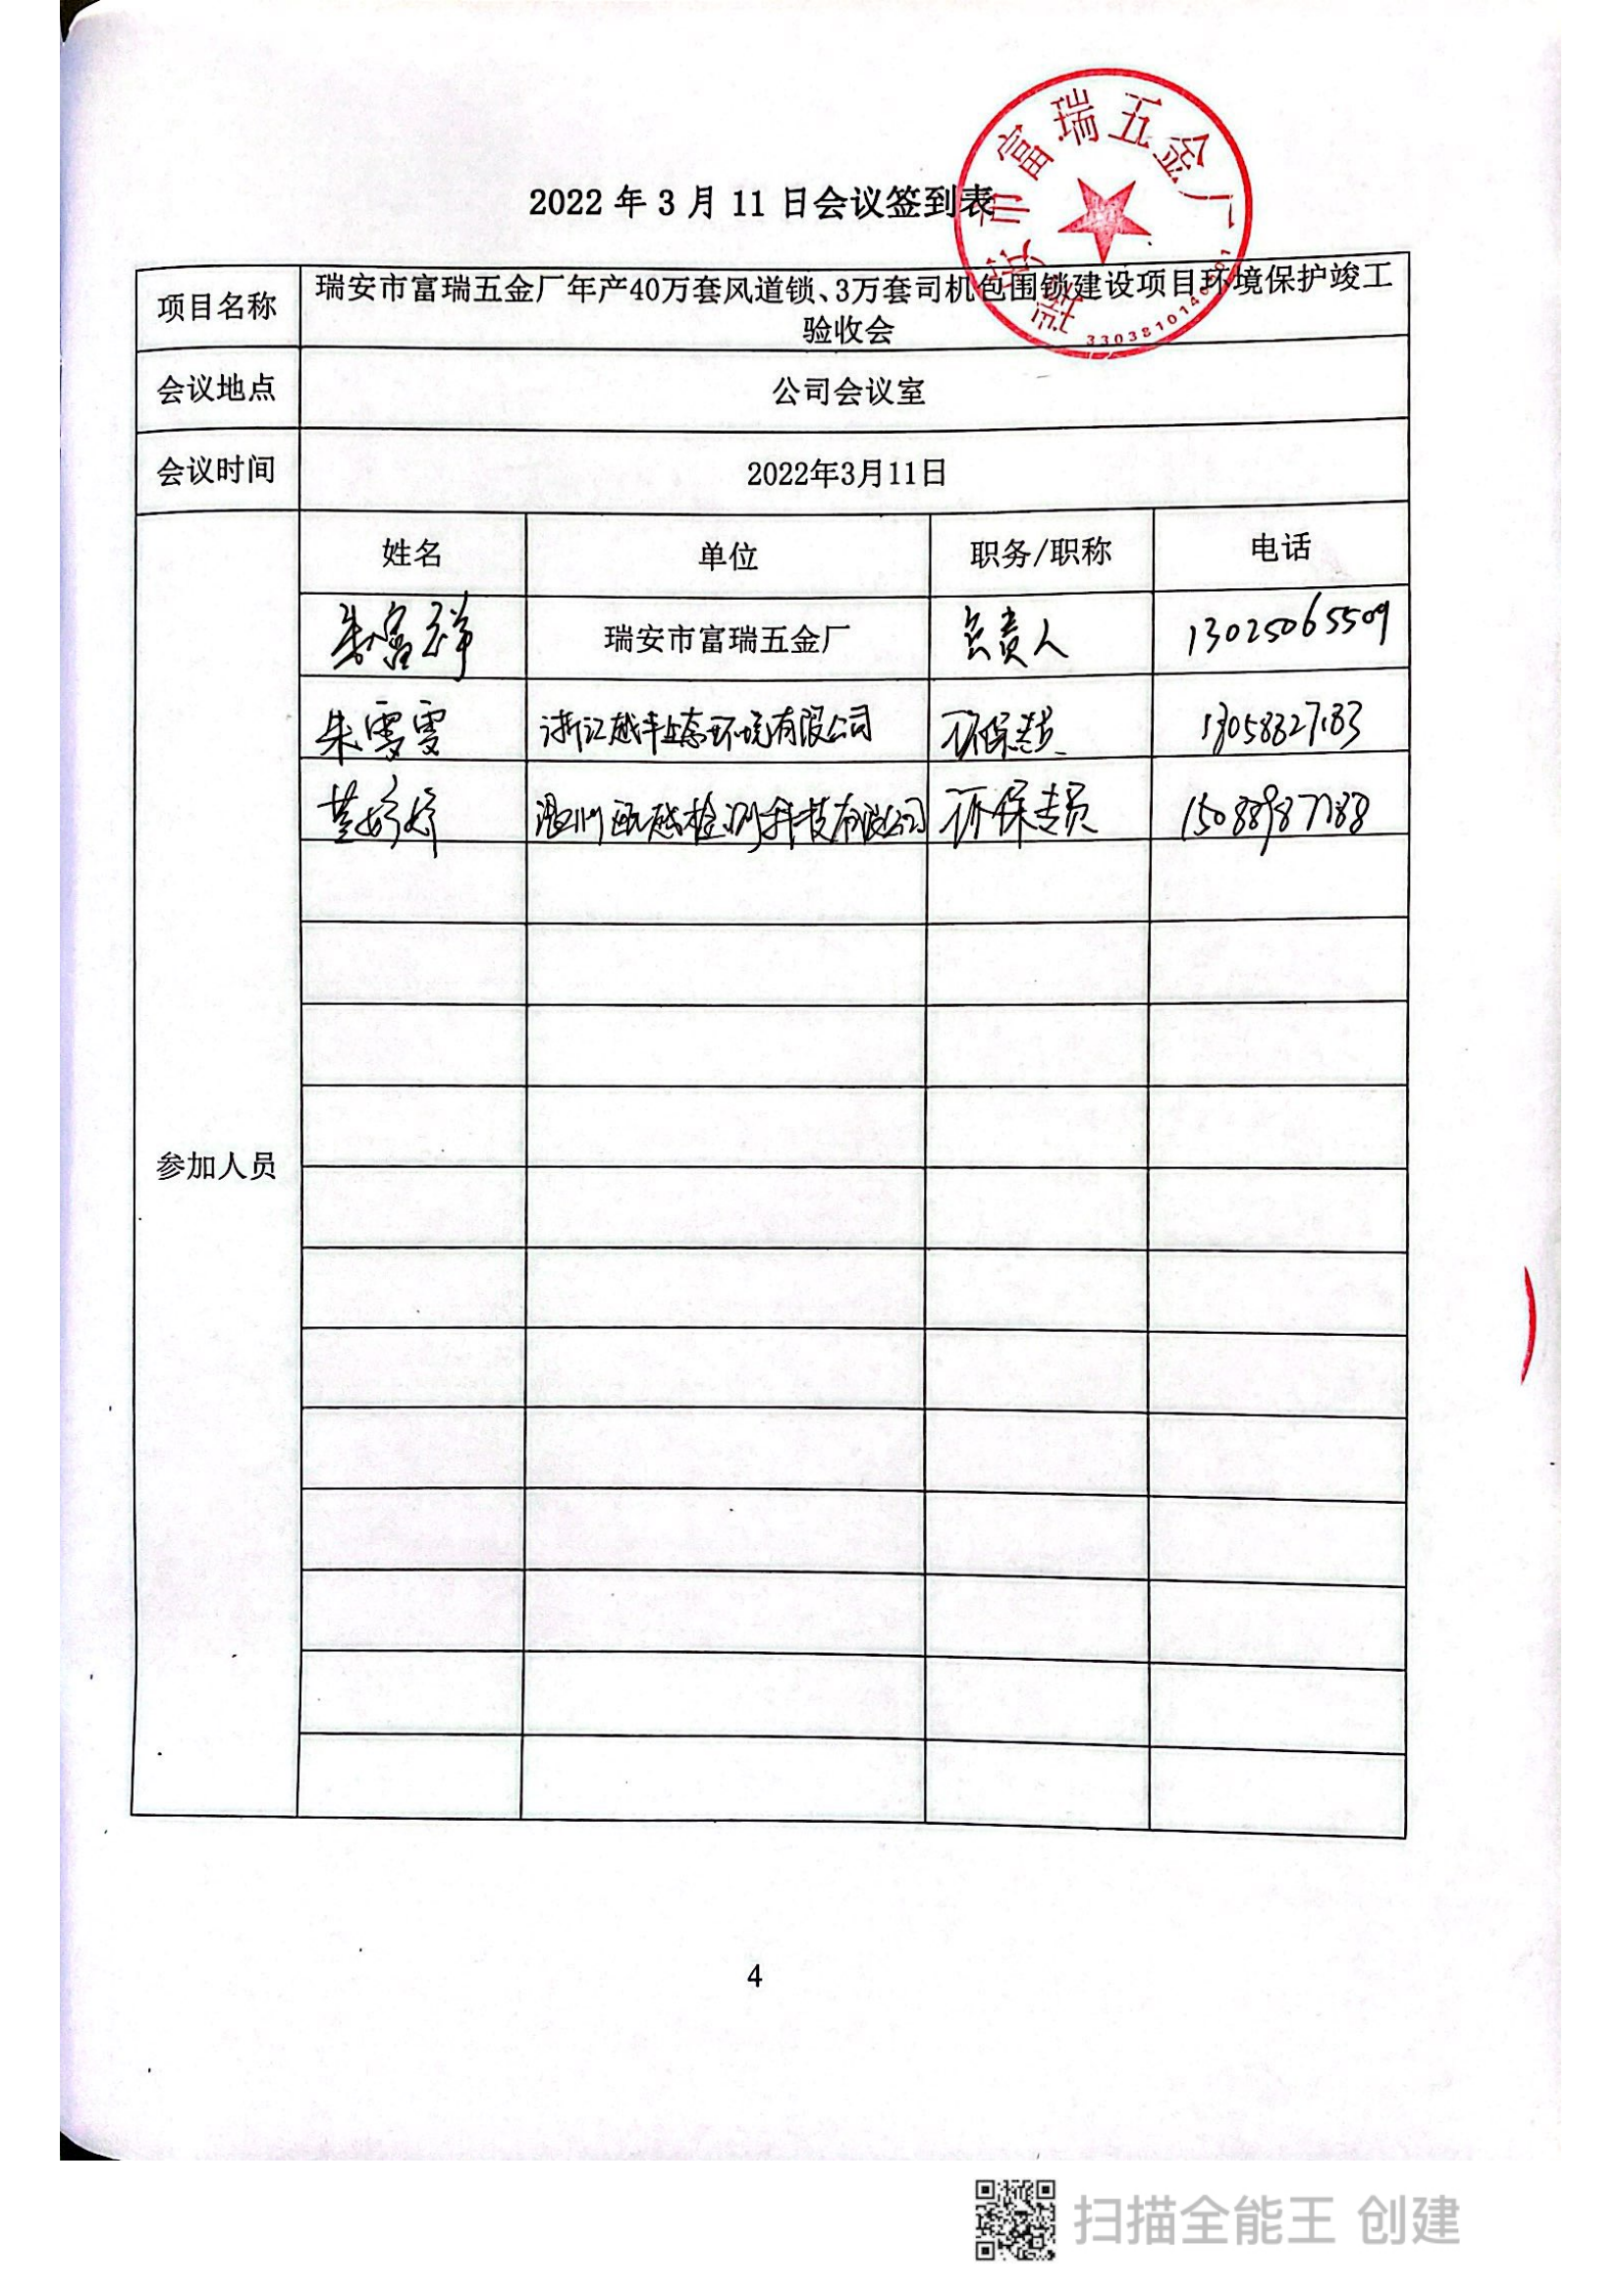 瑞安市富瑞五金厂
2022 年 3 月 11 日会议签到表
项目名称
瑞安市富瑞五金厂年产40万套风道锁、3万套司机包围锁建设项目环境保护竣工
验收会
会议地点
公司会议室
会议时间
2022年3月11日
参加人员
姓名 单位 职务/职称 电话
朱富祥 瑞安市富瑞五金厂 负责人 13025065509
朱雯雯 浙江越丰生态环境有限公司 环保专员
温州瓯越检测科技有限公司 环保专员
4
扫描全能王 创建